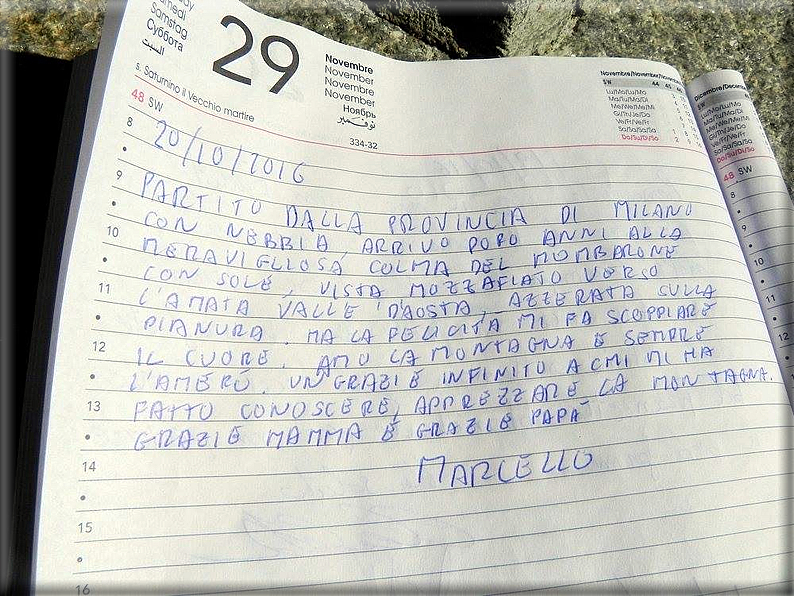 Samstag
Суббота
السبت
29
Novembre
November
November
November
Ноябрь
نوفمبر
s. Saturnino il Vecchio martire
48 SW
334-32
Novembre/November/Novem
SW 44 45
Lu/Mo/Lu/Mo
Ma/Tu/Ma/Di
Me/We/Me/Mi
Gi/Th/Je/Do
Ve/Fr/Ve/Fr
Sa/Sa/Sa/Sa
Do/Su/Di/So
Dicembre/Decem
48 SW
8
20/10/2016
9 PARTITO DALLA PROVINCIA DI MILANO
CON NEBBIA, ARRIVO DOPO ANNI ALLA
10 MERAVIGLIOSA COLMA DEL MOMBARONE
CON SOLE, VISTA MOZZAFIATO VERSO
11 L'AMATA VALLE D'AOSTA, AZZERATA SULLA
PIANURA. MA LA FELICITÀ MI FA SCOPPIARE
12 IL CUORE. AMO LA MONTAGNA E SEMPRE
L'AMERÒ. UN GRAZIE INFINITO A CHI MI HA
13 FATTO CONOSCERE, APPREZZARE LA MONTAGNA.
GRAZIE MAMMA E GRAZIE PAPÀ
14 MARCELLO
15
16
8
9
10
11
12